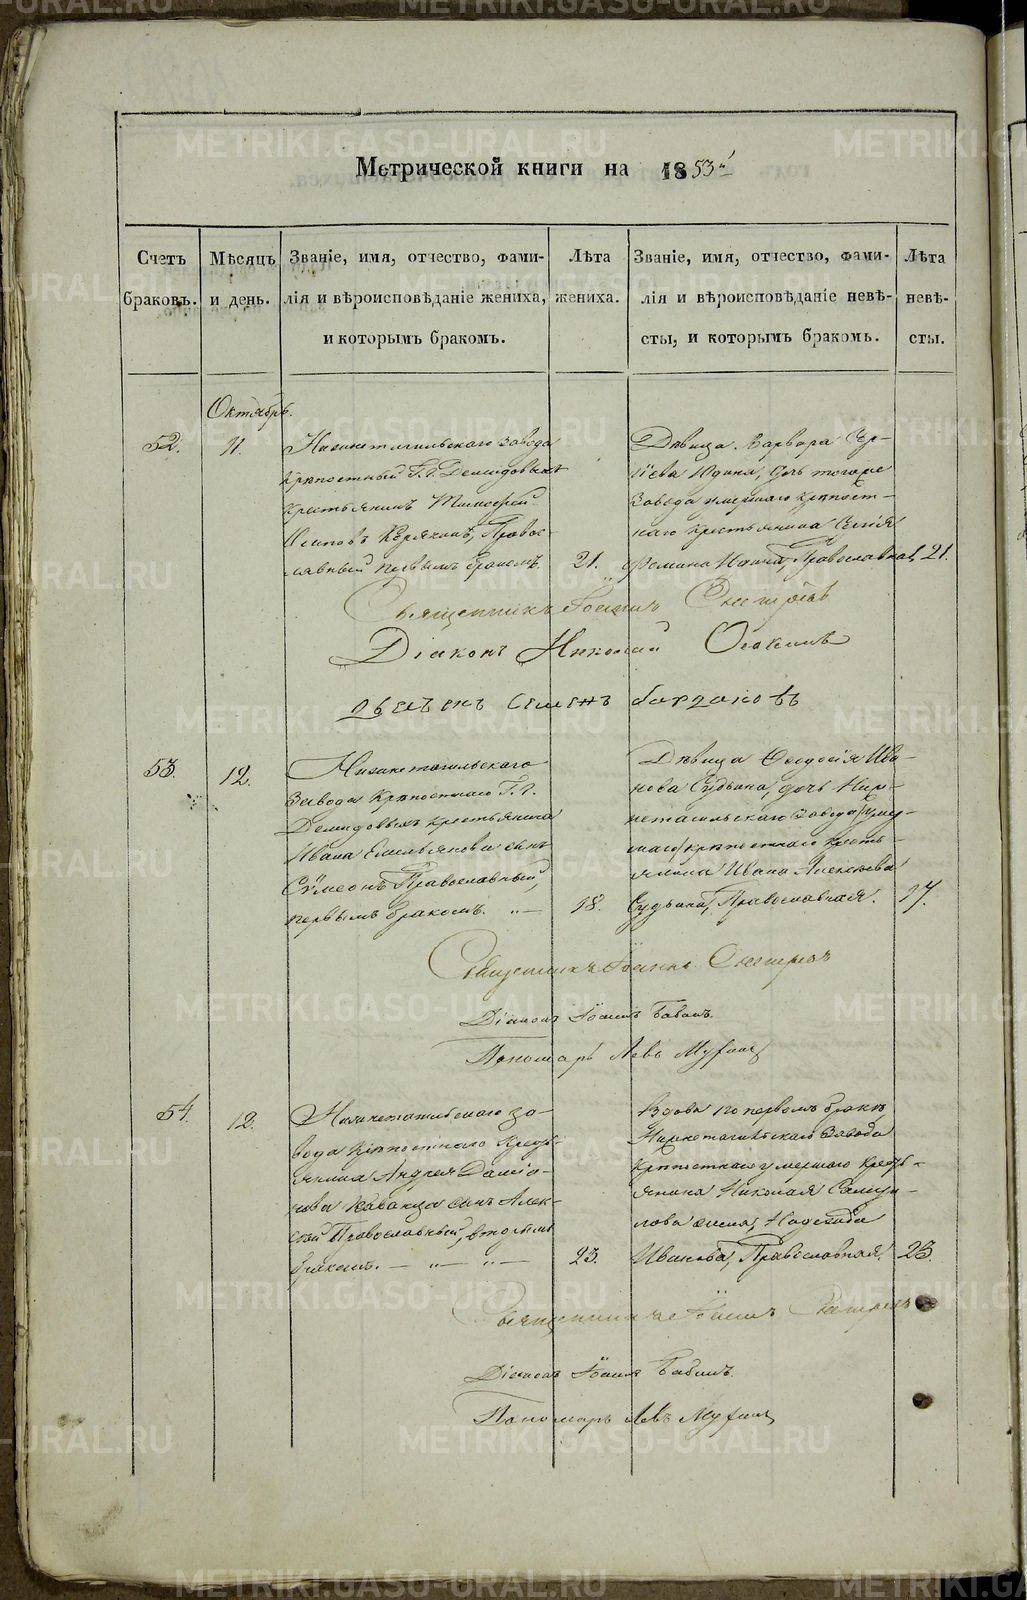 Метрической книги на 1853й
Счетъ браковъ.
Мѣсяцъ и день.
Званіе, имя, отчество, фами-
лія и вѣроисповѣданіе жениха,
и которымъ бракомъ.
Лѣта жениха.
Званіе, имя, отчество, фами-
лія и вѣроисповѣданіе невѣ-
сты, и которымъ бракомъ.
Лѣта невѣ-
сты.
Октябрь.
52.
11.
Нижнетагильскаго завода
крѣпостный Г.г. Демидовыхъ
крестьянинъ Тимоѳей
Осиповъ Правос-
лавный первымъ бракомъ.
21.
Дѣвица Варвара Сер-
гіева Юдина, дочь тогоже
Завода умершаго крѣпост-
наго крестьянина Сергія
Ѳомина Юдина, Православная,
21.
Священникъ Іоаннъ
Діаконъ Николай
Семенъ
53.
12.
Нижнетагильскаго
Завода крѣпостнаго Г.г.
Демидовыхъ крестьянина
Ивана Емельянова сынъ
Сѵмеонъ Православный,
первымъ бракомъ. „ —
18.
Дѣвица Ѳеодосія Ива-
нова Судьина, дочь Ниж-
нетагильскаго Завода умер-
шаго крѣпостнаго кресть-
янина Ивана Алексѣева
Судьина, Православная.
17.
Священникъ Іоаннъ
Діаконъ Іоаннъ Бабинъ.
Пономарь Левъ Мухинъ
54.
12.
Нижнетагильскаго за-
вода крѣпостнаго Кресть-
янина Андрея Даміа-
нова сынъ Алек-
сѣй Православный, вторымъ
бракомъ. — „ — „ —
23.
Вдова по первомъ бракѣ
Нижнетагильскаго Завода
крѣпостнаго умершаго кресть-
янина Николая Самуи-
лова жена, Надежда
Иванова, Православная.
23.
Священникъ Іоаннъ
Діаконъ Іоаннъ Бабинъ.
Пономарь Левъ Мухинъ
METRIKI.GASO-URAL.RU